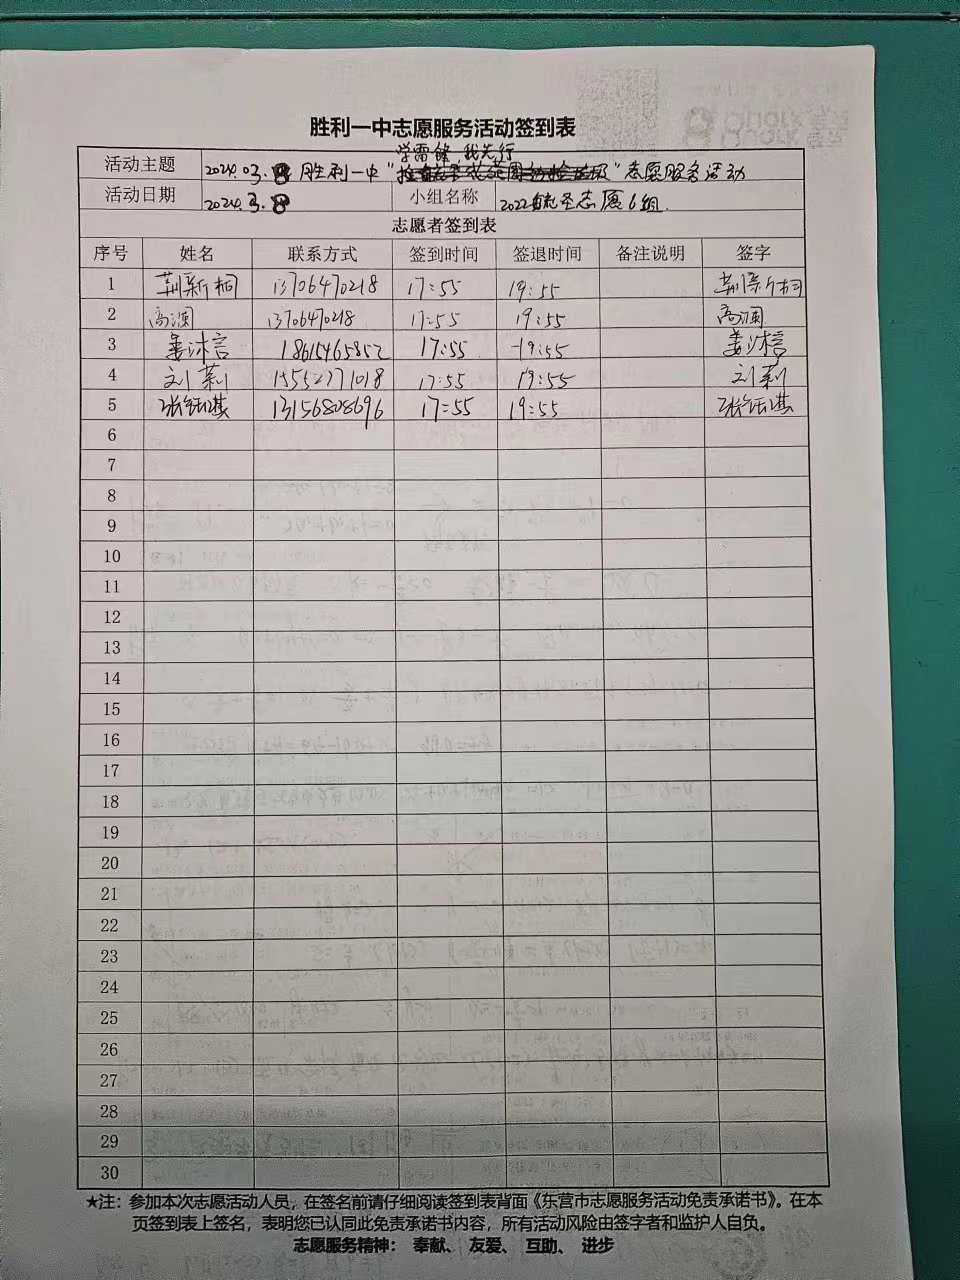 胜利一中志愿服务活动签到表
学雷锋,我先行
活动主题 2024.03.8 胜利一中“ ”志愿服务活动
活动日期 2024.3.8 小组名称 2022 志愿6组
志愿者签到表
序号 姓名 联系方式 签到时间 签退时间 备注说明 签字
1 荆新桐 13706470218 17:55 19:55 荆新桐
2 高澜 13706470218 17:55 19:55 高澜
3 姜沐言 18615465852 17:55 19:55 姜沐言
4 刘莉 15552771018 17:55 19:55 刘莉
5 张钰琪 13156808696 17:55 19:55 张钰琪
6
7
8
9
10
11
12
13
14
15
16
17
18
19
20
21
22
23
24
25
26
27
28
29
30
★注:参加本次志愿活动人员,在签名前请仔细阅读签到表背面《东营市志愿服务活动免责承诺书》。在本
页签到表上签名,表明您已认同此免责承诺书内容,所有活动风险由签字者和监护人自负。
志愿服务精神: 奉献、 友爱、 互助、 进步